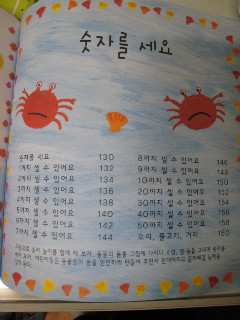 숫자를 세요
숫자를 세요 130
1까지 셀 수 있어요 132
2까지 셀 수 있어요 134
3까지 셀 수 있어요 136
4까지 셀 수 있어요 138
5까지 셀 수 있어요 140
6까지 셀 수 있어요 142
7까지 셀 수 있어요 144
8까지 셀 수 있어요 146
9까지 셀 수 있어요 148
10까지 셀 수 있어요 150
20까지 셀 수 있어요 152
30까지 셀 수 있어요 154
40까지 셀 수 있어요 156
50까지 셀 수 있어요 158
오리, 물고기, 거미 160